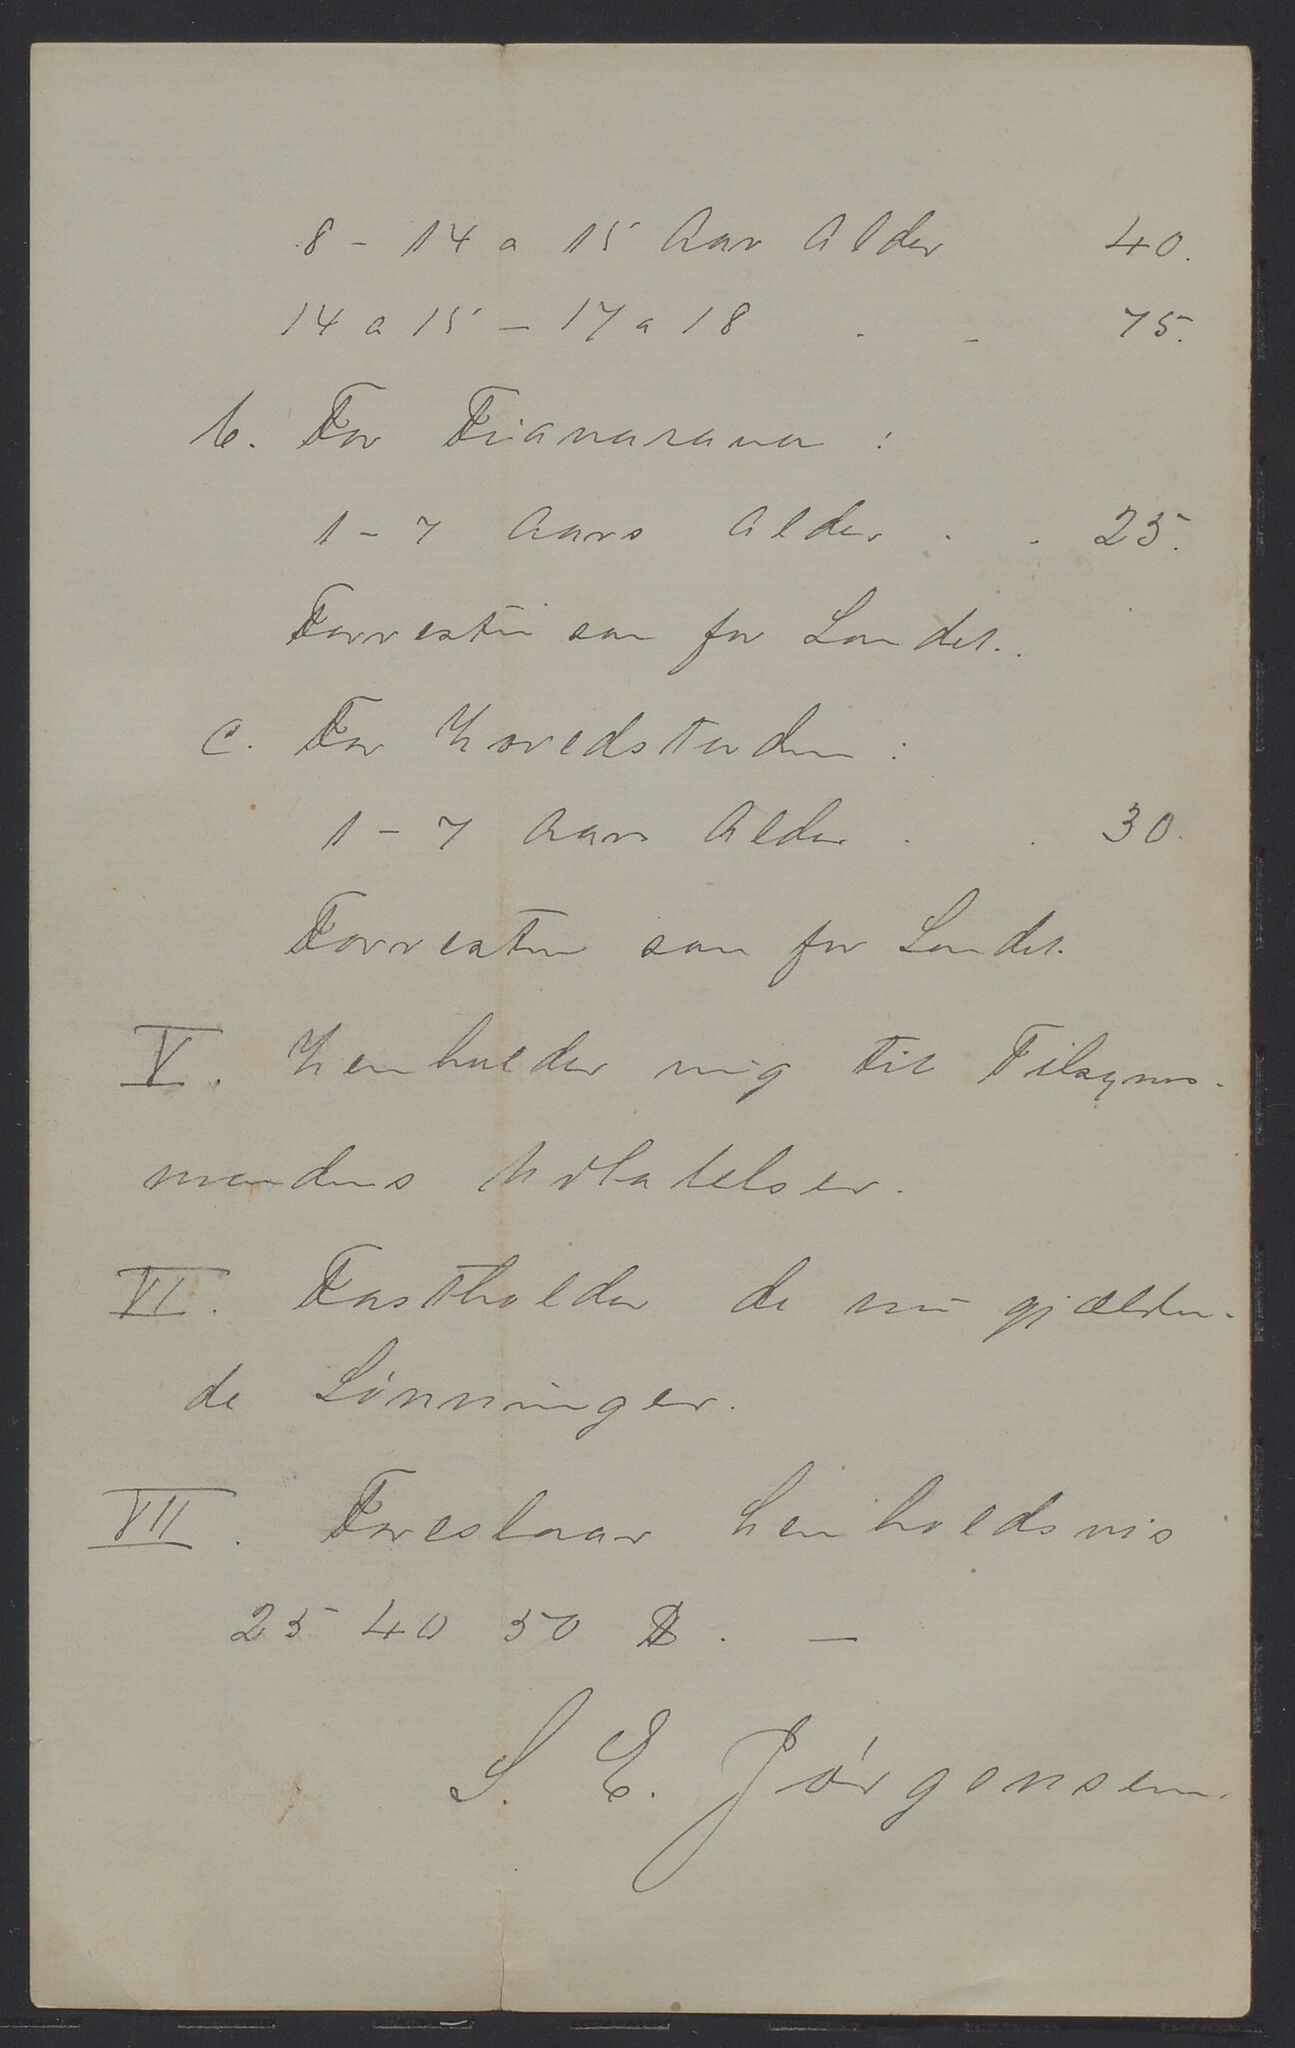 8 - 14 a 15 Aar Alder 40.
14 a 15 - 17 a 18 - - 75.
b. For Fianarana :
1 - 7 Aars Alder . . 25.
Forresten som for Landet.
c. For Hovedstaden :
1 - 7 Aars Alder . . 30.
Forresten som for Landet.
V. Henholder mig til Tilsyns-
mandens Udtalelser.
VI. Fastholder de nu gjælden-
de Lönninger.
VII. Foreslaar henholdsvis
25 40 50 $. —
S. E. Jörgensen.